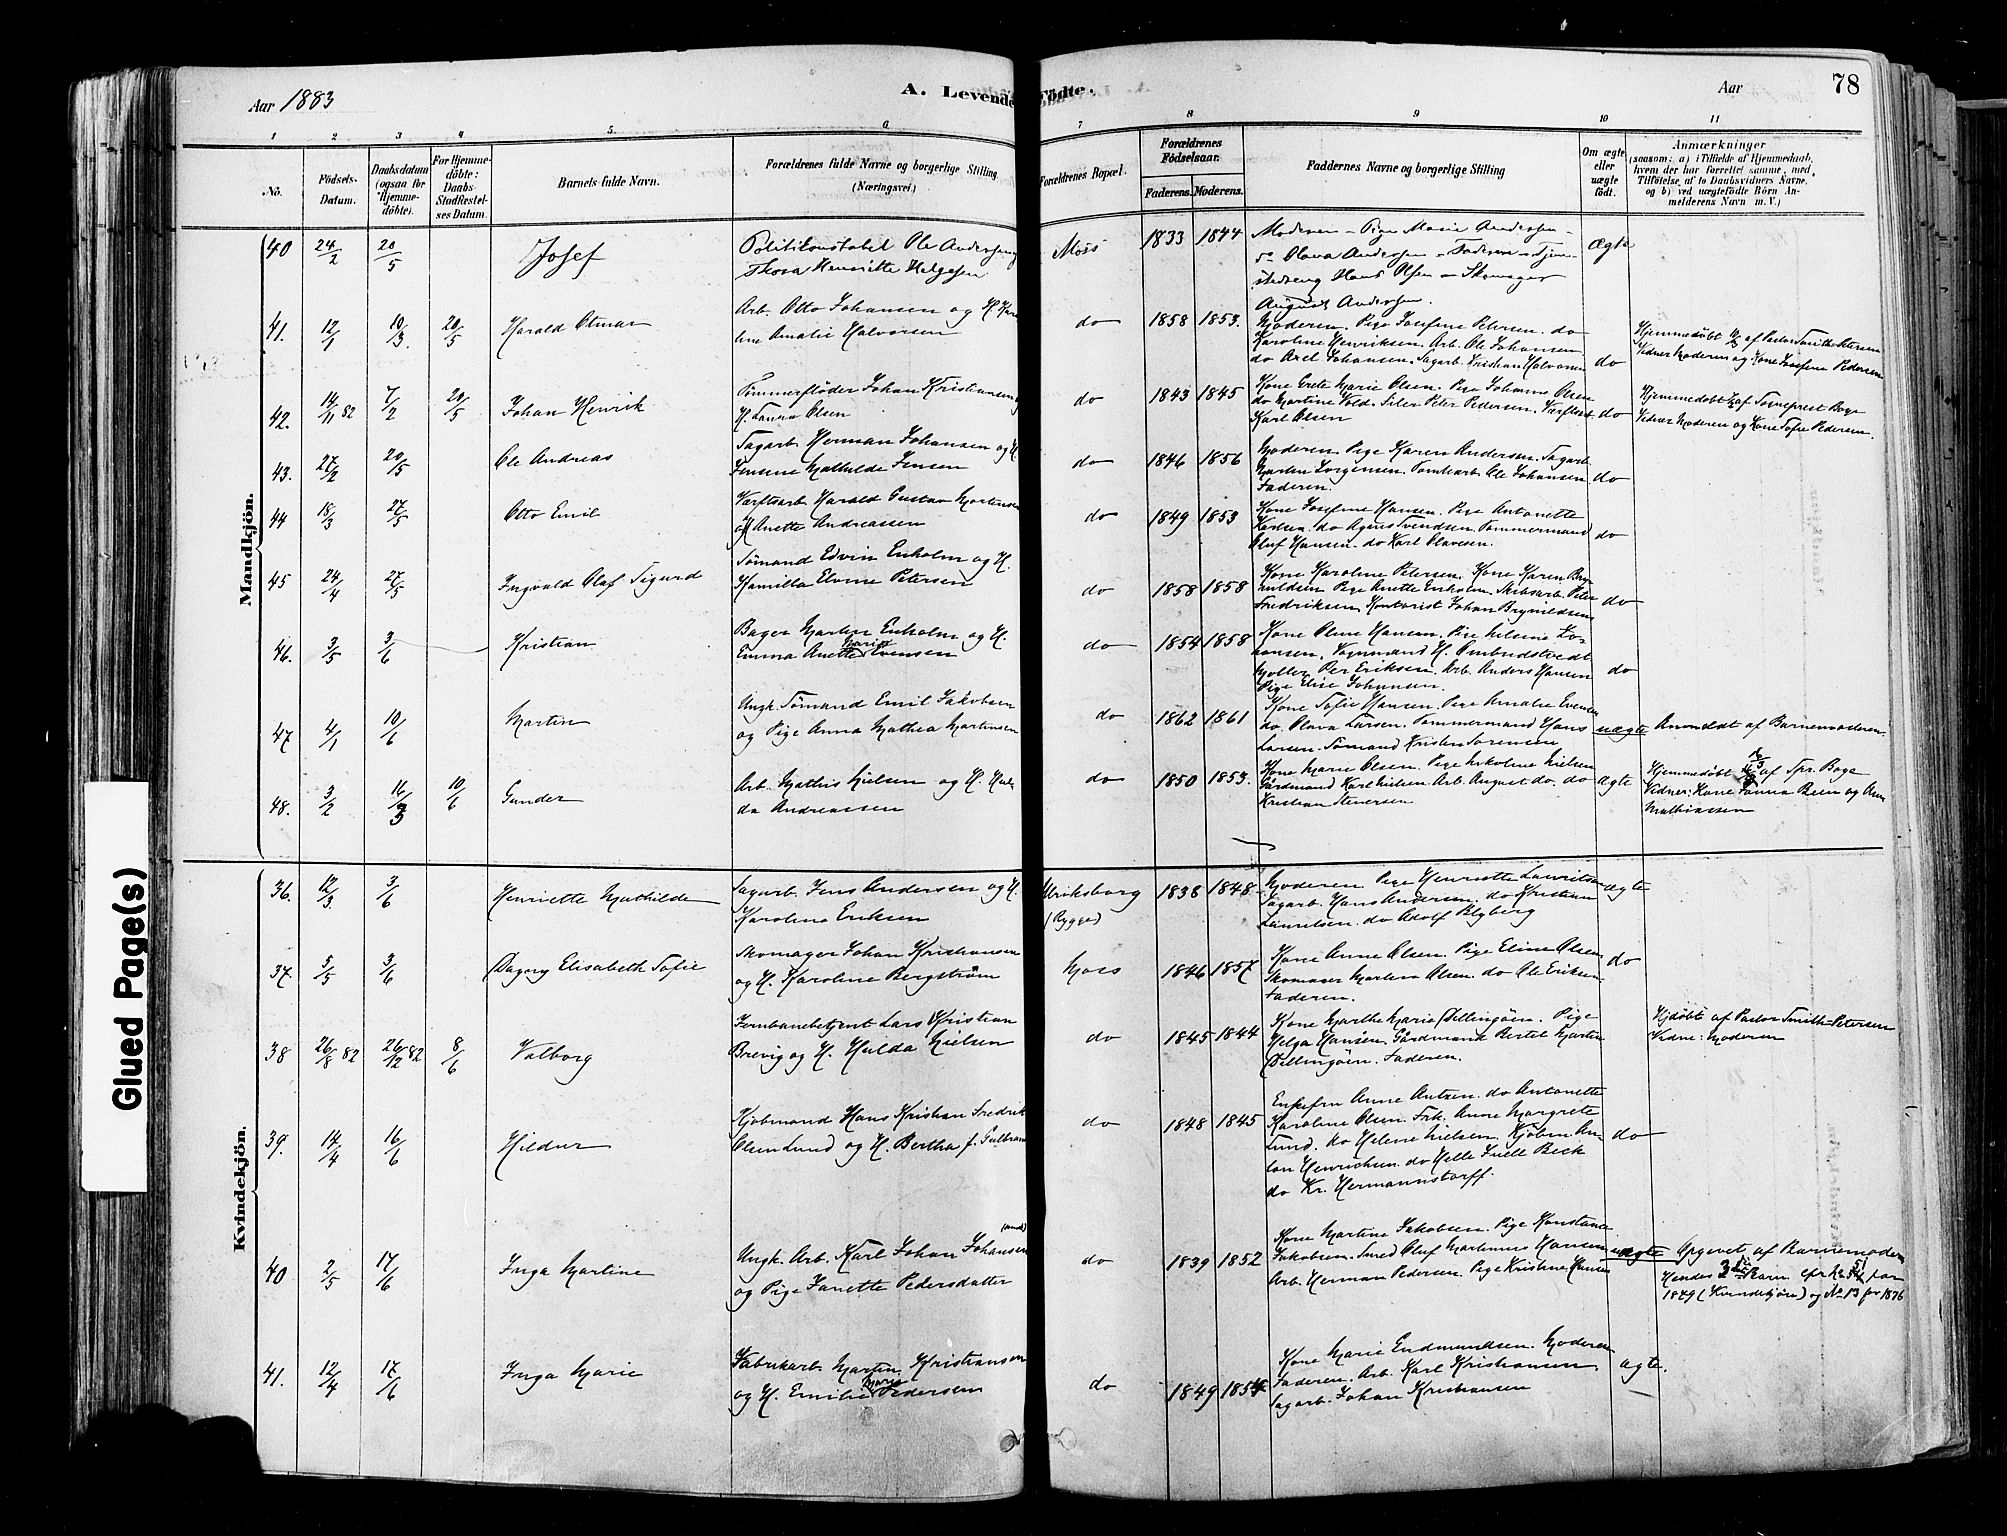 Aar 1883
A. Levende Födte.
Aar
78
1 2 3 4 5 6 7 8 9 10 11
No.
Födsels-Datum.
Daabsdatum (ogsaa for Hjemme-döbte).
For Hjemme-döbte: Daabs-Stadfestel-ses Datum.
Barnets fulde Navn.
Forældrenes fulde Navne og borgerlige Stilling (Næringsvei.)
Forældrenes Bopæl.
Forældrenes Födselsaar.
Faderens. Moderens.
Faddernes Navne og borgerlige Stilling
Om ægte eller uægte födt.
Anmærkninger
(saasom: a) i Tilfælde af Hjemmedaab, hvem der har forrettet samme, med Tilföielse af to Daabsvidners Navne, og b) ved uægtefödte Börn An-melderens Navn m. V.)
Mandkjön.
40 24/2 20/5 Josef
Politikonstabel Ole Andersen og
Thora Henriette Helgesen
Moss 1833 1844
Moderen - Pige Marie Andersen -
do Olava Andersen - Faderen - Tjene-
stedreng Hans Olsen - Skomager
August Andersen.
Ægte
41. 12/1 10/3 20/5 Harald Otmar
Arb. Otto Johansen og H. Karo
line Amalie Halvorsen
do 1858 1853.
Moderen. Pige Josefine Petersen. do
Karoline Henriksen. Arb. Ole Johansen
do Axel Johansen. Sagarb. Kristian Halvorsen
do
Hjemmedøbt af Pastor Smith-Petersen
Vidner Moderen og Kone Josefine Pedersen
42. 14/11 82 7/2 20/5 Johan Henrik
Tømmerfløder Johan Kristiansen og
H. Laura Olsen
do 1843 1845
Kone Grete Marie Olsen. Pige Johanne Olsen
do Martine Vold. Peter Pedersen. Værftsarb.
Karl Olsen
do
Hjemmedøbt af Sogneprest Boge
Vidner Moderen og Kone Sofie Pedersen.
43. 27/2 20/5 Ole Andreas
Sagarb. Herman Johansen og H.
Jensine Mathilde Jensen
do 1846 1856
Moderen Pige Karen Andersen. Sagarb.
Martin Jørgensen. Tomtearb. Ole Johansen
Faderen.
do
44 18/3 27/5 Otto Emil
Værftsarb. Harald Gustav Mortensen
og H. Anette Andreassen
do 1849 1853
Kone Josefine Hansen. Pige Antonette
Karlsen. do Agnes Svendsen. Tømmermand
Oluf Hansen. do Karl Olavesen.
do
45 24/4 27/5 Ingvald Olaf Sigurd
Sømand Edvin Enholm og H.
Kamilla Elvine Petersen
do 1858 1858
Kone Karoline Petersen. Kone Karen Bry-
nildsen Pige Anette Enholm. Skibsarb. Peter
Fredriksen. Kontorist Johan Brynildsen
do
46. 3/5 3/6 Kristian
Bager Martin Enholm og H.
Emma Anette Marie Evensen
do 1854 1858
Kone Oline Hansen. Pige
Vognmand H. Ombudstvedt
Møller Per Eriksen. Arb. Anders Hansen
Pige Elise Johansen.
do
47 4/1 10/6 Martin
Ungk. Sømand Emil Jakobsen
og Pige Anna Mathea Martinsen
do 1862 1861
Kone Sofie Hansen. Pige Amalie Evensen
do. Olava Larsen. Tømmermand Hans
Larsen. Sømand Kristen Sørensen
uægte
Anmeldt af Barnemoderen
48. 3/2 16/3 10/6 Gunder
Arb. Mathis Nielsen og H. Hul-
da Andreassen
do 1850 1853.
Kone Marie Olsen. Pige Nielsen
Gårdmand Karl Nielsen Arb. August do. do
Kristian Stenersen
Ægte
Hjemmedøbt af Spr. Boge
Vidner: Kone Beien og Ann
Mathiassen
Kvindekjön.
36. 12/3 3/6 Henriette Mathilde
Sagarb. Jens Andersen og H.
Karoline Eriksen
Ulriksborg (Rygge) 1838 1848
Moderen Pige Henriette Lauritsen
Sagarb. Hans Andersen. do Kristian
Lauritsen. do Adolf Blyberg
ægte
37. 5/5 3/6 Dagny Elisabeth Sofie
Skomager Johan Kristiansen
og H. Karoline Bergstrøm
Moss 1846 1857
Kone Anne Olsen. Pige Eline Olsen
Skomager Martin Olsen. do Ole Eriksen
Faderen.
do
38 26/8 82 26/12 82 8/6 Valborg
Jernbanebetjent Lars Kristian
Brevig og H. Hulda Nielsen
do 1845 1844
Kone Marthe Marie Dillingøen. Pige
Helga Hansen. Gårdmand Bertel Martin
Dillingøen. Faderen.
Hjdøbt af Pastor Smith-Petersen
Vidne: Moderen
39. 14/4 16/6 Hildur
Kjøbmand Hans Kristian Fredrik
Olsen Lund og H. Bertha f. Gulbran
do 1848 1845
Enkefru Anne Antzen. do Antonette
Karoline Olsen. Frk. Anne Margrete
Lund. do Helene Nielsen. Kjøbm. An-
ton Henrichsen. do Helle Juell Beck
do Kr. Hermannstorff.
do
40 2/5 17/6 Inga Martine
Ungk. Arb. Karl Johan Johansen
og Pige Janette Pedersdatter
do 1839 1852
Kone Martine Jakobsen. Pige Konstance
Jakobsen. Smed Oluf Martinius Hansen
Arb. Herman Pedersen. Pige Kristine Hansen
uægte
Opgivet af Barnemoderen
Hendes 3die Barn cfr No 51 for
1879 (Kvindekjøn) og No 13 for 1876
41. 12/4 17/6 Inga Marie
Fabrikarb. Martin Kristiansen
og H. Emilie Marie Pedersen
do 1849 1854
Kone Marie Endmundsen. Moderen
Faderen. Arb. Karl Kristiansen.
Sagarb. Johan Kristiansen
ægte.
Glued Page(s)